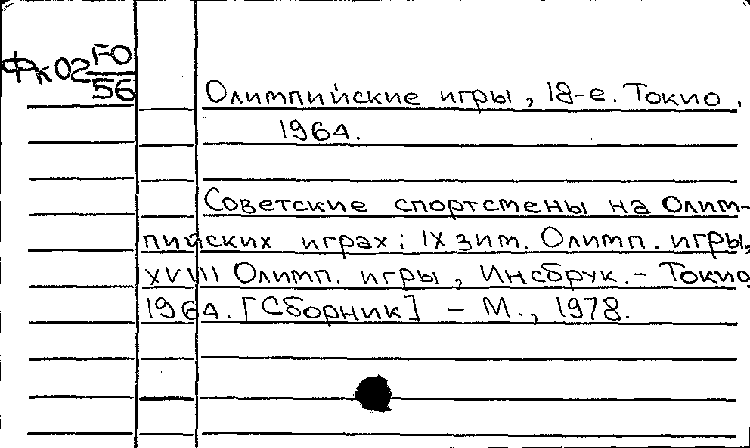 Фк02 FO
56
Олимпийские игры, 18-е. Токио.
1964.
Советские спортсмены на Олим-
пийских играх: IX зим. Олимп. игры,
XVIII Олимп. игры, Инсбрук. - Токио
1964. [Сборник] - М., 1978.